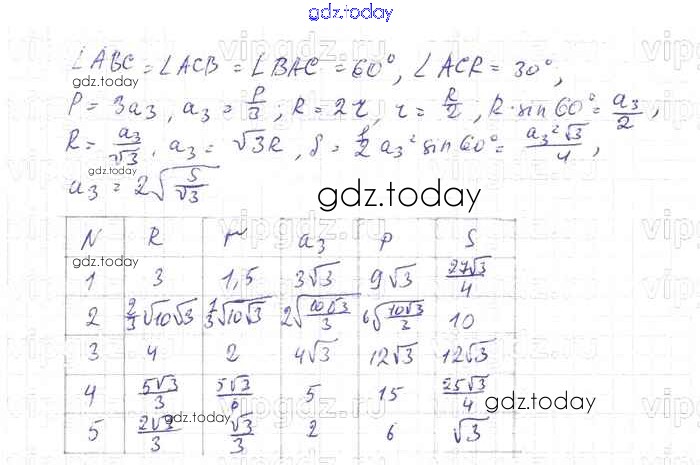 gdz.today
∠ABC = ∠ACB = ∠BAC = 60°, ∠ACR = 30°,
gdz.today
P = 3a₃, a₃ = P/3; R = 2r, r = R/2, R·sin 60° = a₃/2,
R = a₃/√3, a₃ = √3R, S = 1/2 a₃² sin 60° = a₃²√3/4,
a₃ = 2√(S/√3)
gdz.today
N R r a₃ P S
gdz.today
1 3 1,5 3√3 9√3 27√3/4
2 2/3√10√3 1/3√10√3 2√(10√3/3) 6√(10√3/3) 10
3 4 2 4√3 12√3 12√3
4 5√3/3 5√3/6 5 15 25√3/4
gdz.today
5 2√3/3 √3/3 2 6 √3
gdz.today